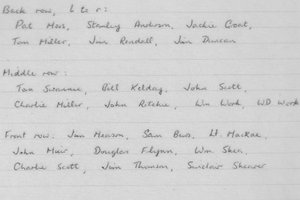 Back row, l to r:
Pat Moss, Stanley Anderson, Jackie Groat,
Tom Miller, Jim Rendall, Jim Duncan
Middle row:
Tom Sinclair, Bill Kelday, John Scott,
Charlie Miller, John Ritchie, Wm Work, WD Work
Front row. Jim Henson, Sam Bews, Lt. Mackae,
John Muir, Douglas Flynn, Wm Shea,
Charlie Scott, Jim Thomson, Sinclair Shearer